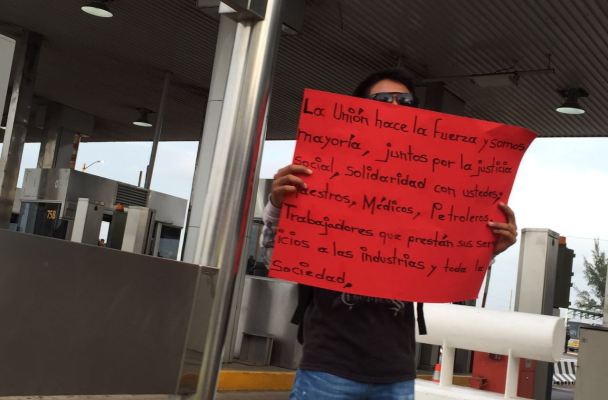 La Unión hace la Fuerza y somos
mayoría, juntos por la justicia
social, solidaridad con ustedes:
Maestros, Médicos, Petroleros,
Trabajadores que prestán sus serv
icios a las industrias y toda la
Sociedad,
75B